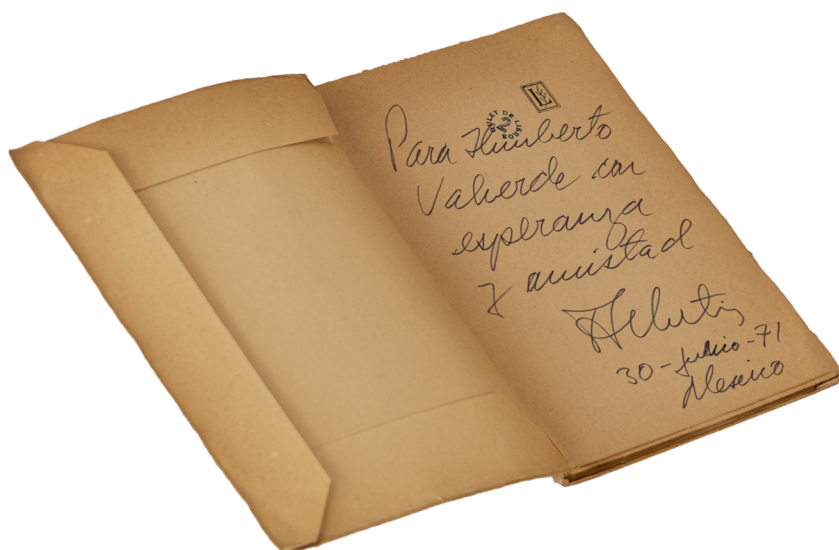 L
Para Humberto
Valverde con
esperanza
y amistad
30-Julio-71
Mexico